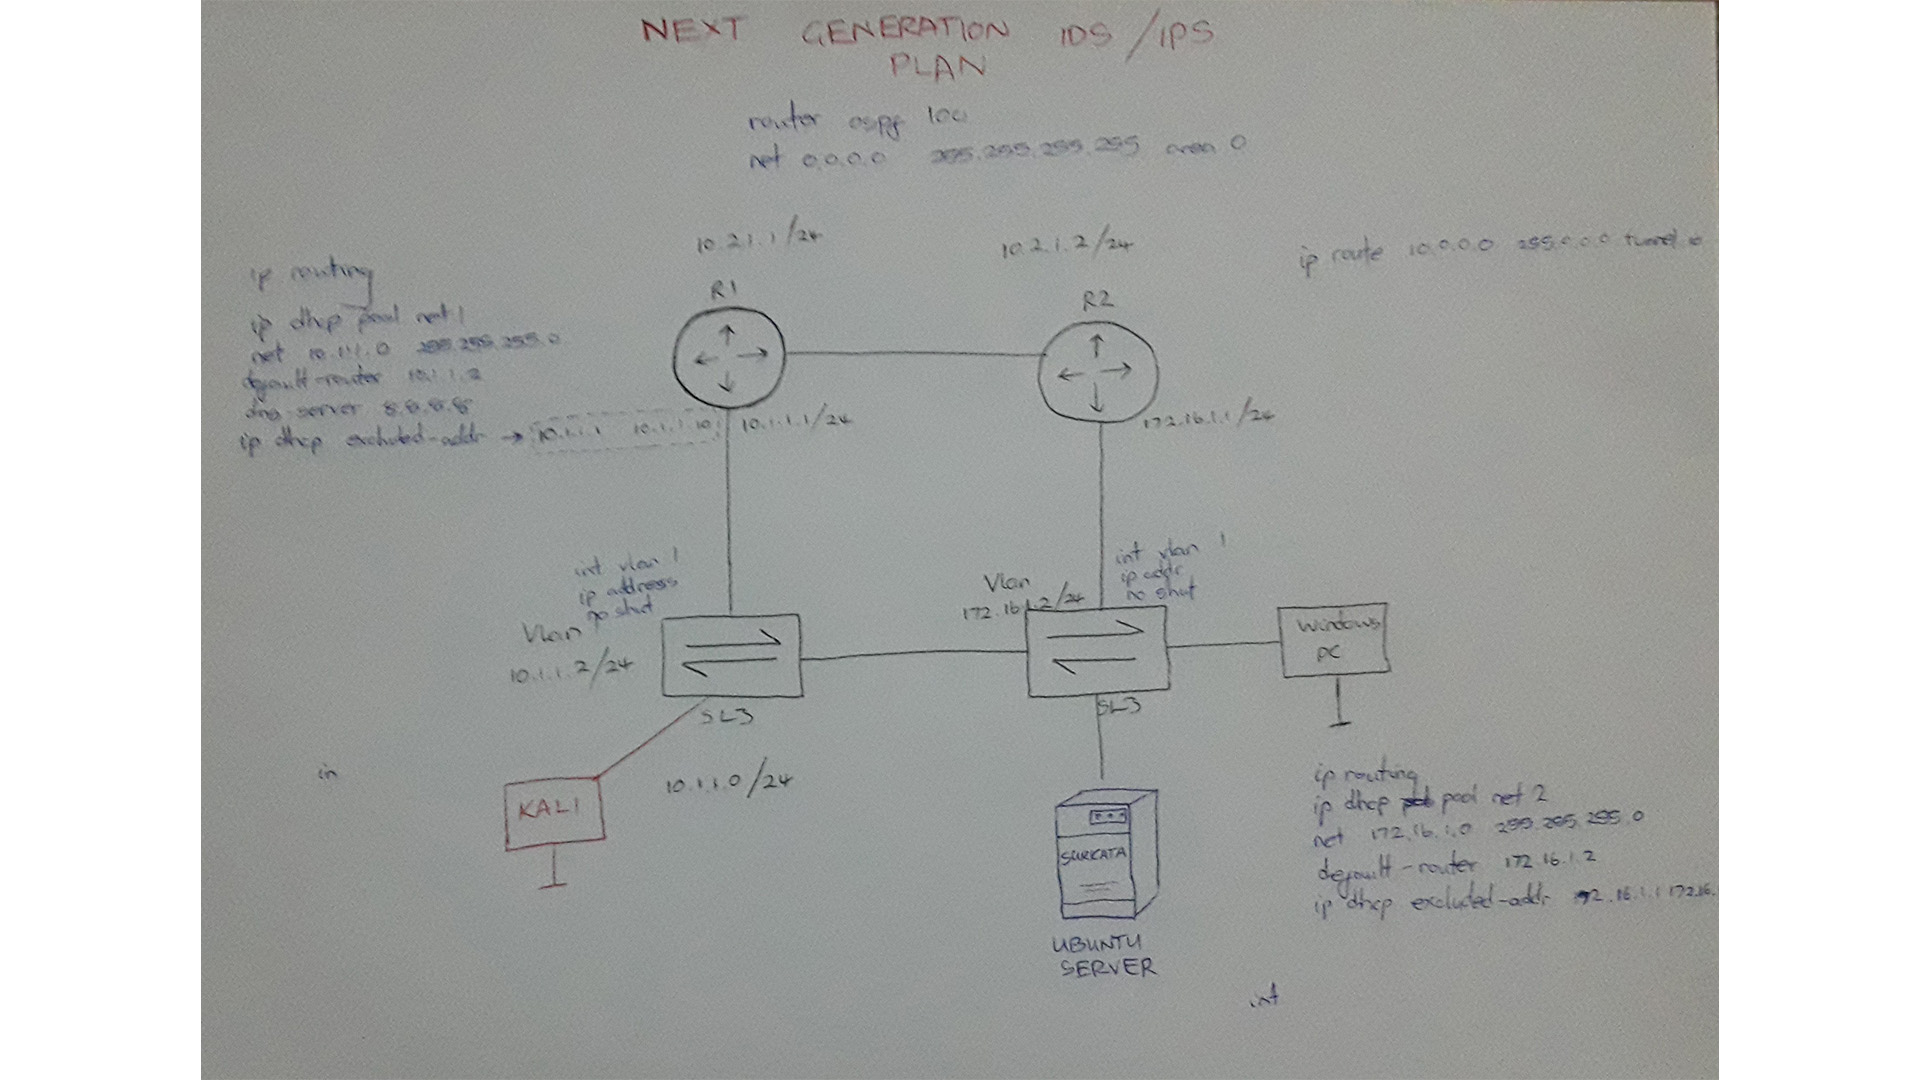 NEXT GENERATION IDS/IPS
PLAN
router ospf 100
net 0.0.0.0 255.255.255.255 area 0
10.2.1.1/24
10.2.1.2/24
ip route 10.0.0.0 255.0.0.0 tunnel
R1
R2
ip routing
ip dhcp pool net1
net 10.1.1.0 255.255.255.0
default-router 10.1.1.2
dns-server 8.8.8.8
ip dhcp excluded-addr → 10.1.1.1 10.1.1.10
10.1.1.1/24
172.16.1.1/24
int vlan 1
ip address
no shut
Vlan
10.1.1.2/24
int vlan 1
ip addr
no shut
Vlan
172.16.1.2/24
SL3
SL3
windows
PC
in
KALI
10.1.1.0/24
SURICATA
UBUNTU
SERVER
ip routing
ip dhcp pool net 2
net 172.16.1.0 255.255.255.0
default-router 172.16.1.2
ip dhcp excluded-addr 172.16.1.1 172.16.
int